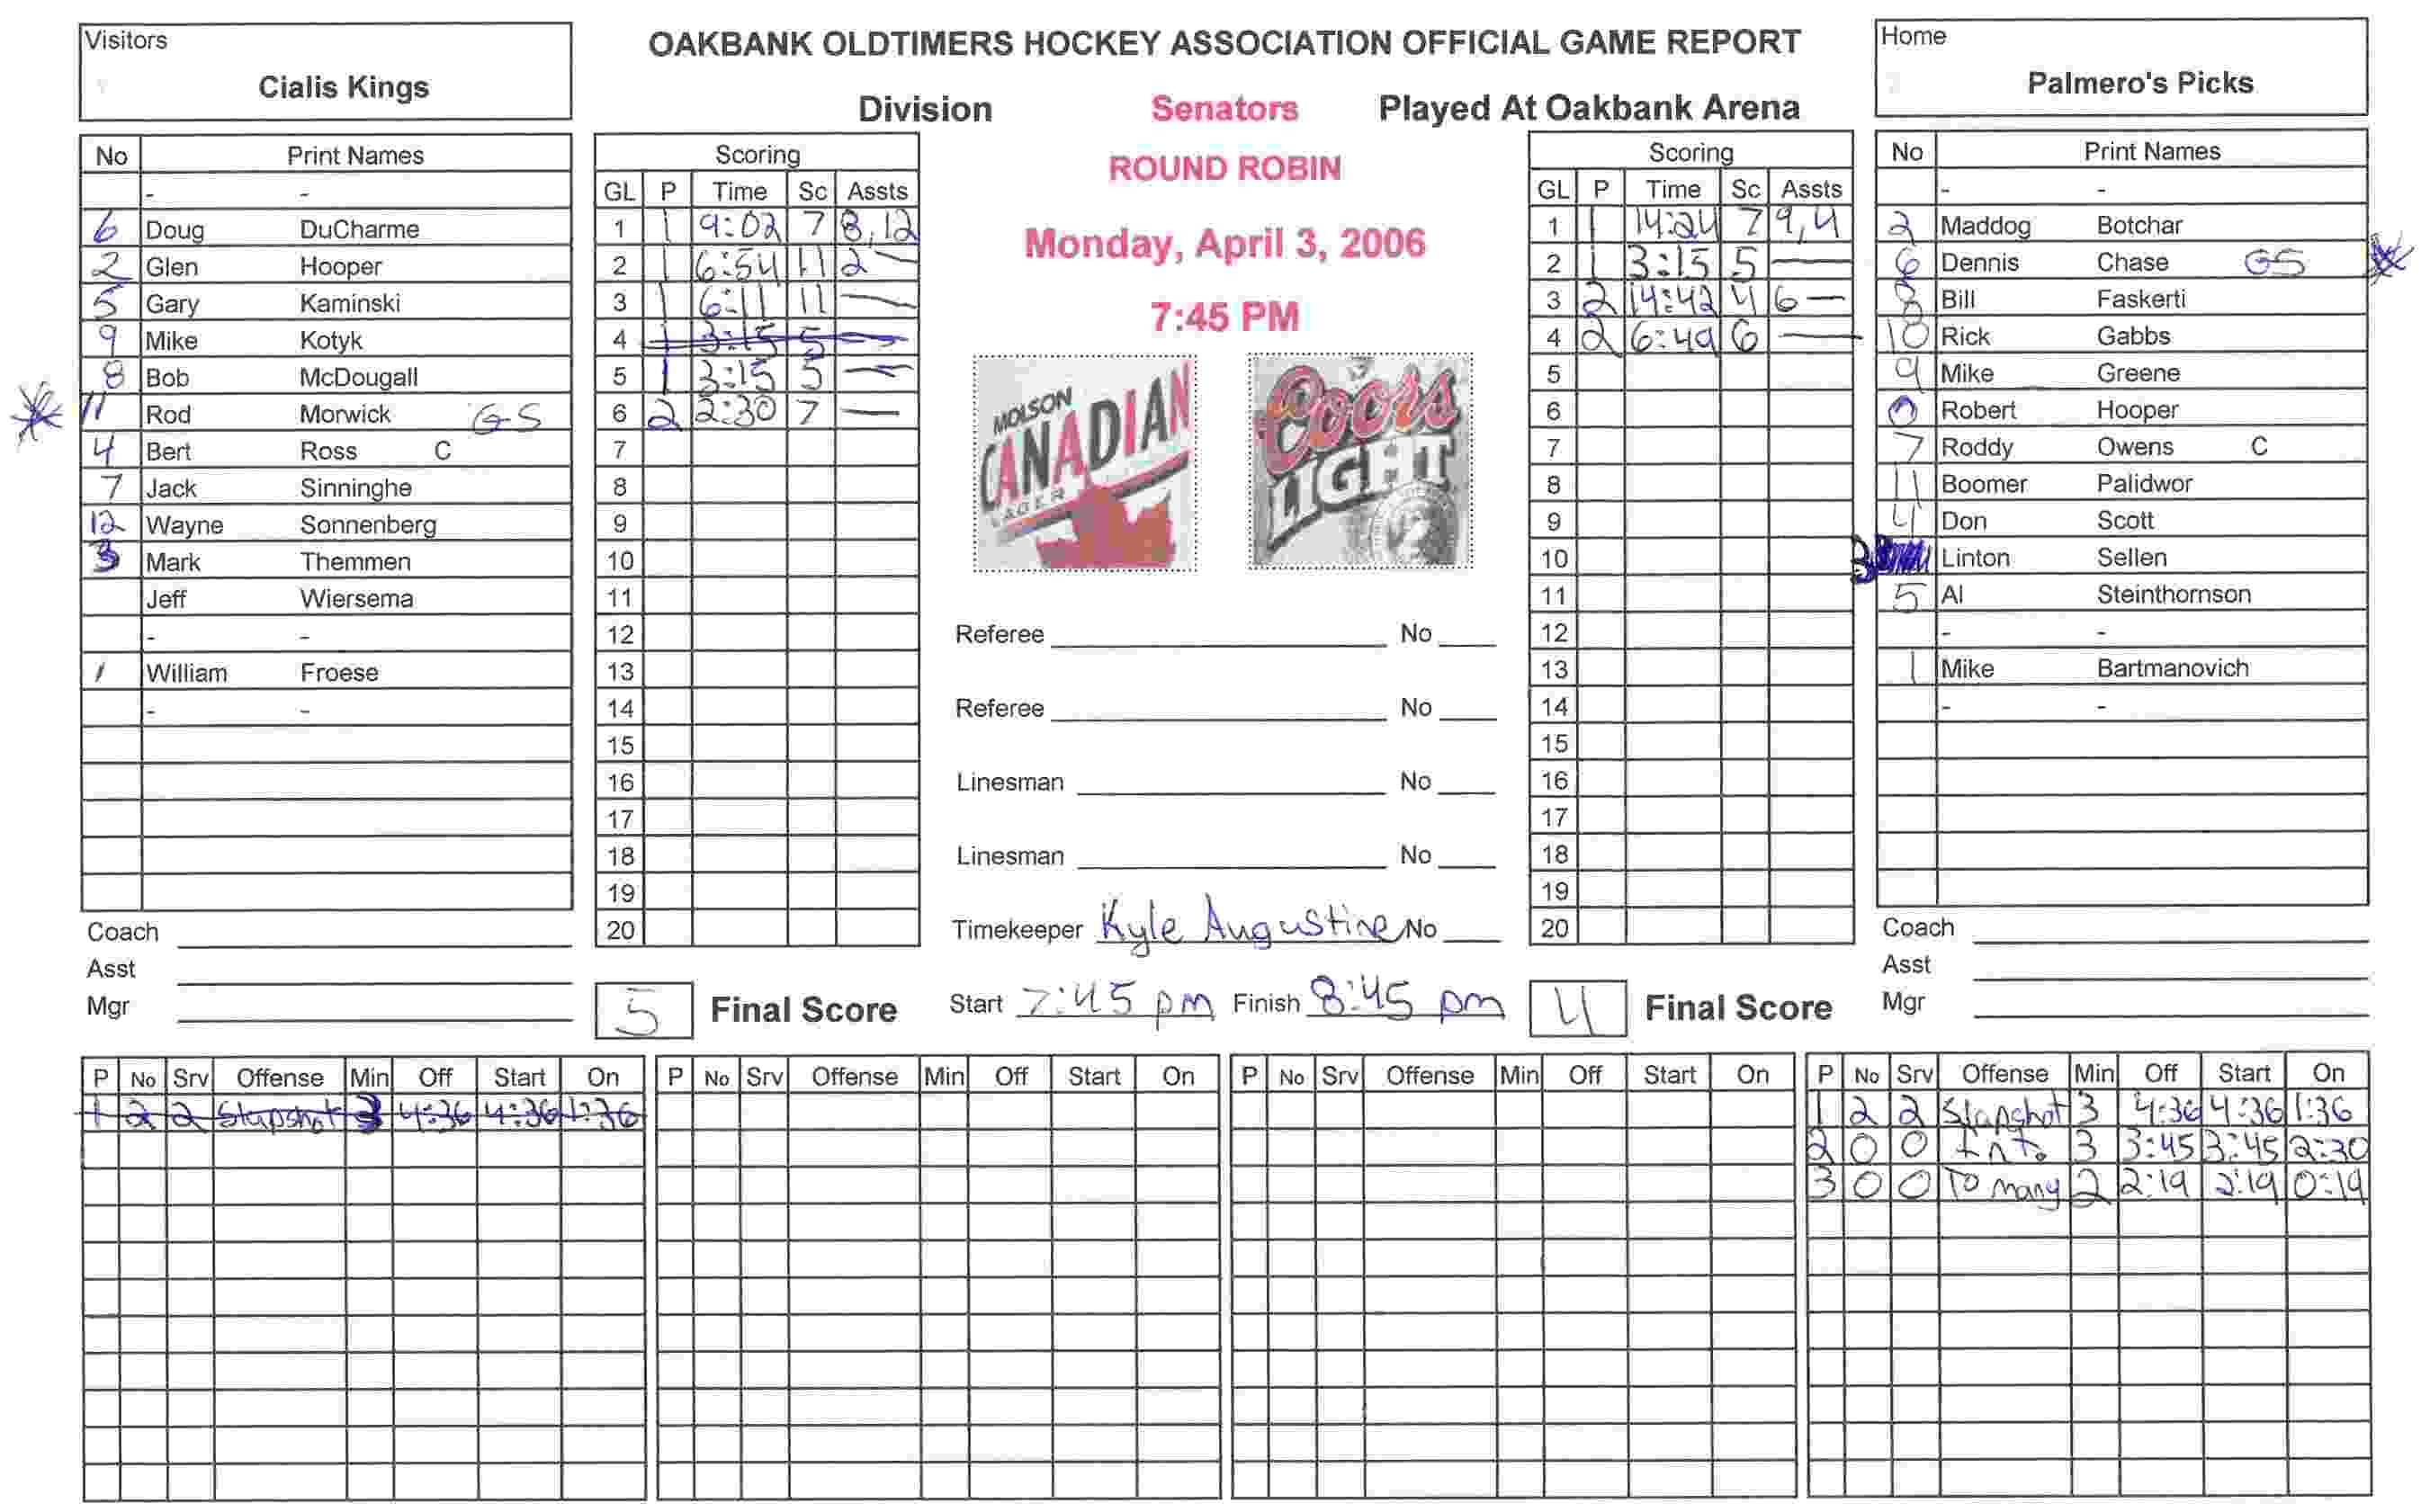 Visitors
Cialis Kings
OAKBANK OLDTIMERS HOCKEY ASSOCIATION OFFICIAL GAME REPORT
Division Senators Played At Oakbank Arena
ROUND ROBIN
Monday, April 3, 2006
7:45 PM
Home
Palmero's Picks
No Print Names
- -
6 Doug DuCharme
2 Glen Hooper
5 Gary Kaminski
9 Mike Kotyk
8 Bob McDougall
11 Rod Morwick GS
4 Bert Ross C
7 Jack Sinninghe
12 Wayne Sonnenberg
3 Mark Themmen
Jeff Wiersema
- -
1 William Froese
- -
Coach
Asst
Mgr
Scoring
GL P Time Sc Assts
1 1 9:02 7 8,12
2 1 6:54 11 2 —
3 1 6:11 11 —
4 1 3:15 5 —
5 1 3:15 5 —
6 2 2:30 7 —
7
8
9
10
11
12
13
14
15
16
17
18
19
20
5 Final Score
MOLSON
CANADIAN
LAGER
Coors
LIGHT
Referee No
Referee No
Linesman No
Linesman No
Timekeeper Kyle Augustine No
Start 7:45 pm Finish 8:45 pm
Scoring
GL P Time Sc Assts
1 1 14:24 7 9,4
2 1 3:15 5 —
3 2 14:42 4 6 —
4 2 6:49 6 —
5
6
7
8
9
10
11
12
13
14
15
16
17
18
19
20
4 Final Score
No Print Names
- -
2 Maddog Botchar
6 Dennis Chase GS
8 Bill Faskerti
10 Rick Gabbs
9 Mike Greene
0 Robert Hooper
7 Roddy Owens C
11 Boomer Palidwor
4 Don Scott
Linton Sellen
5 Al Steinthornson
- -
1 Mike Bartmanovich
- -
Coach
Asst
Mgr
P No Srv Offense Min Off Start On
1 2 2 Slapshot 3 4:36 4:36 1:36
P No Srv Offense Min Off Start On
P No Srv Offense Min Off Start On
P No Srv Offense Min Off Start On
1 2 2 Slapshot 3 4:36 4:36 1:36
2 0 0 Int. 3 3:45 3:45 2:30
3 0 0 To many 2 2:19 2:19 0:19